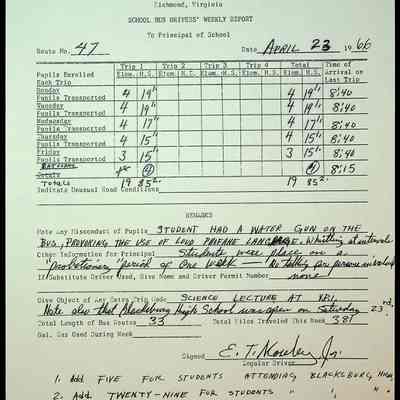 Richmond, Virginia
SCHOOL BUS DRIVERS' WEEKLY REPORT
To Principal of School
Route No. 47 Date APRIL 23 1966
Trip 1 Trip 2 Trip 3 Trip 4 Total Time of
Pupils Enrolled Elem. H.S. Elem. H.S. Elem. H.S. Elem. H.S. Elem. H.S. Arrival on
Each Trip Last Trip
Monday
Pupils Transported 4 19 4 19 8:40
Tuesday
Pupils Transported 4 19 4 19 8:40
Wednesday
Pupils Transported 4 17 4 17 8:40
Thursday
Pupils Transported 4 15 4 15 8:40
Friday
Pupils Transported 3 15 3 15 8:40
4 4 8:15
Totals 19 85 19 85
Indicate Unusual Road Conditions
REMARKS
Note Any Misconduct of Pupils STUDENT HAD A WATER GUN ON THE
BUS, PROVOKING THE USE OF LOUD PROFANE LANGUAGE. Whistling at intervals
Other Information for Principal Students were place on a
"probationary period of one week -
If Substitute Driver Used, Give Name and Driver Permit Number none
Give Object of Any Extra Trip Made SCIENCE LECTURE AT V.P.I.
Note also that Blacksburg High School was open on Saturday 23rd.
Total Length of Bus Routes 33 Total Miles Traveled This Week 381
Gal. Gas Used During Week
Signed E. T. Moseley Jr.
Regular Driver
1. Add FIVE FOR STUDENTS ATTENDING BLACKSBURG HIGH,
2. Add TWENTY-NINE FOR STUDENTS " " "